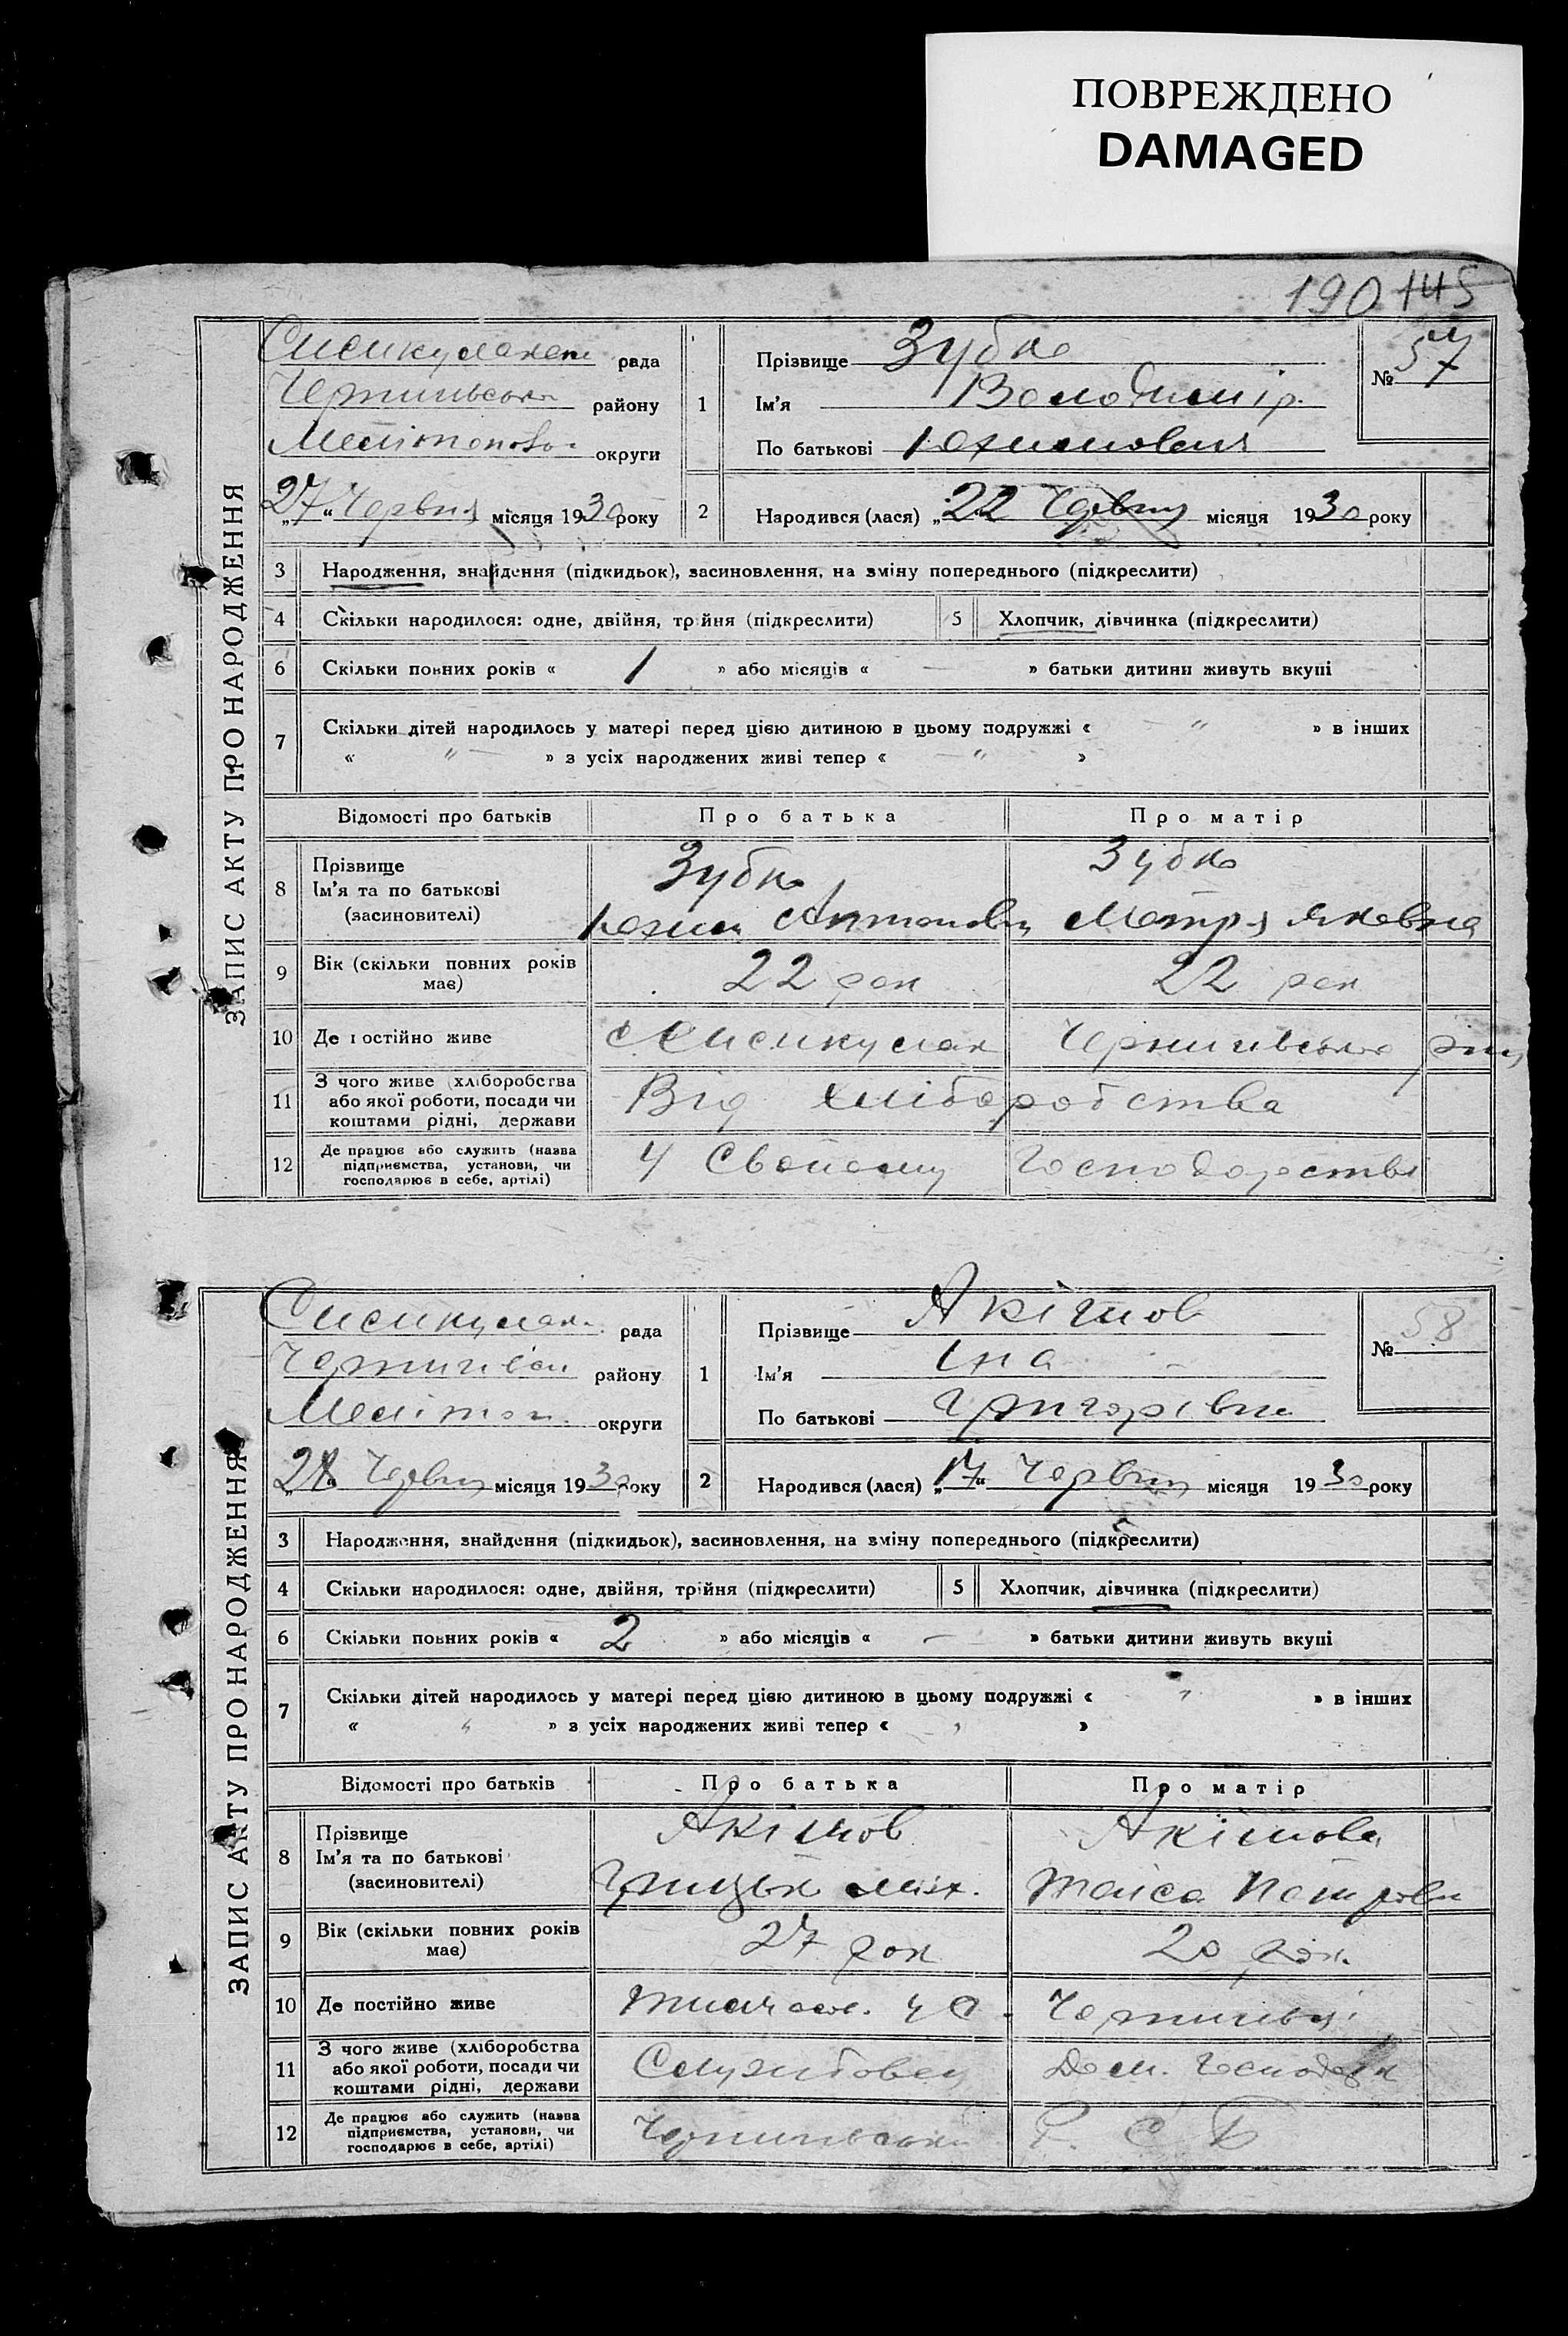 ПОВРЕЖДЕНО
DAMAGED
190 145
ЗАПИС АКТУ ПРО НАРОДЖЕННЯ
рада
району
округи
„27“ Червня місяця 1930 року
1
Прізвище Зубко
Ім'я Володимір.
По батькові Юхимович
№ 57
2
Народився (лася) „22 Червня місяця 1930 року
3 Народження, знайдення (підкидьок), засиновлення, на зміну попереднього (підкреслити)
4 Скільки народилося: одне, двійня, трійня (підкреслити) 5 Хлопчик, дівчинка (підкреслити)
6 Скільки повних років « 1 » або місяців « — » батьки дитини живуть вкупі
7 Скільки дітей народилось у матері перед цією дитиною в цьому подружжі « — " » в інших
« " — » з усіх народжених живі тепер « — " »
Відомості про батьків Про батька Про матір
8 Прізвище
Ім'я та по батькові
(засиновителі)
Зубко Зубко
Юхим Антонович Мотря Яковна
9 Вік (скільки повних років має) 22 рок 22 рок
10 Де постійно живе
11 З чого живе (хліборобства або якої роботи, посади чи коштами рідні, держави Від хліборобства
12 Де працює або служить (назва підприємства, установи, чи господарює в себе, артілі) У Свойому Господарстві
ЗАПИС АКТУ ПРО НАРОДЖЕННЯ
рада
району
Мелітоп. округи
Червня місяця 1930 року
1
Прізвище Акімов
Ім'я Іна
По батькові Григорівна
№ 58
2
Народився (лася) „17“ Червня місяця 1930 року
3 Народження, знайдення (підкидьок), засиновлення, на зміну попереднього (підкреслити)
4 Скільки народилося: одне, двійня, трійня (підкреслити) 5 Хлопчик, дівчинка (підкреслити)
6 Скільки повних років « 2 » або місяців « — » батьки дитини живуть вкупі
7 Скільки дітей народилось у матері перед цією дитиною в цьому подружжі « " » в інших
« " » з усіх народжених живі тепер « " »
Відомості про батьків Про батька Про матір
8 Прізвище
Ім'я та по батькові
(засиновителі)
Акімов Акімова
Грицько Міх. Таіса Петровн
9 Вік (скільки повних років має) 27 рок 20 рок.
10 Де постійно живе
11 З чого живе (хліборобства або якої роботи, посади чи коштами рідні, держави Службовец Дом. Господарк
12 Де працює або служить (назва підприємства, установи, чи господарює в себе, артілі)